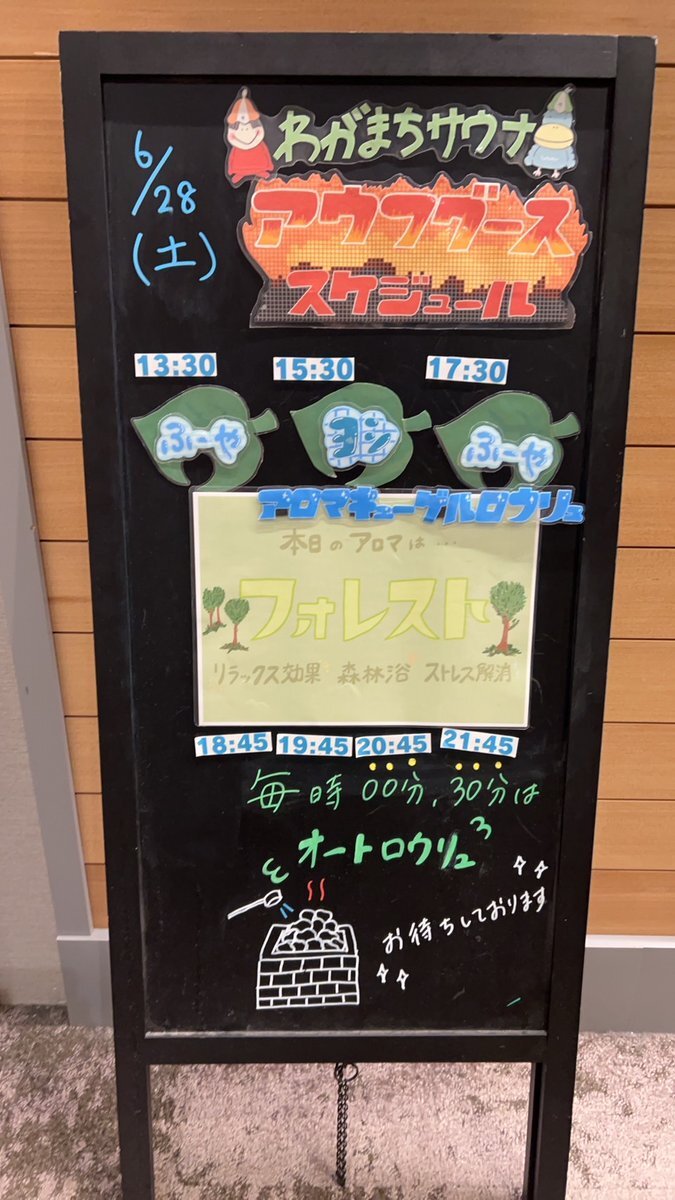 6/28
(土)
わがまちサウナ
アウフグース
スケジュール
13:30 15:30 17:30
ふーや ヨン ふーや
アロマキューゲルロウリュ
本日のアロマは…
フォレスト
リラックス効果 森林浴 ストレス解消
18:45 19:45 20:45 21:45
毎時00分,30分は
オートロウリュ
お待ちしております